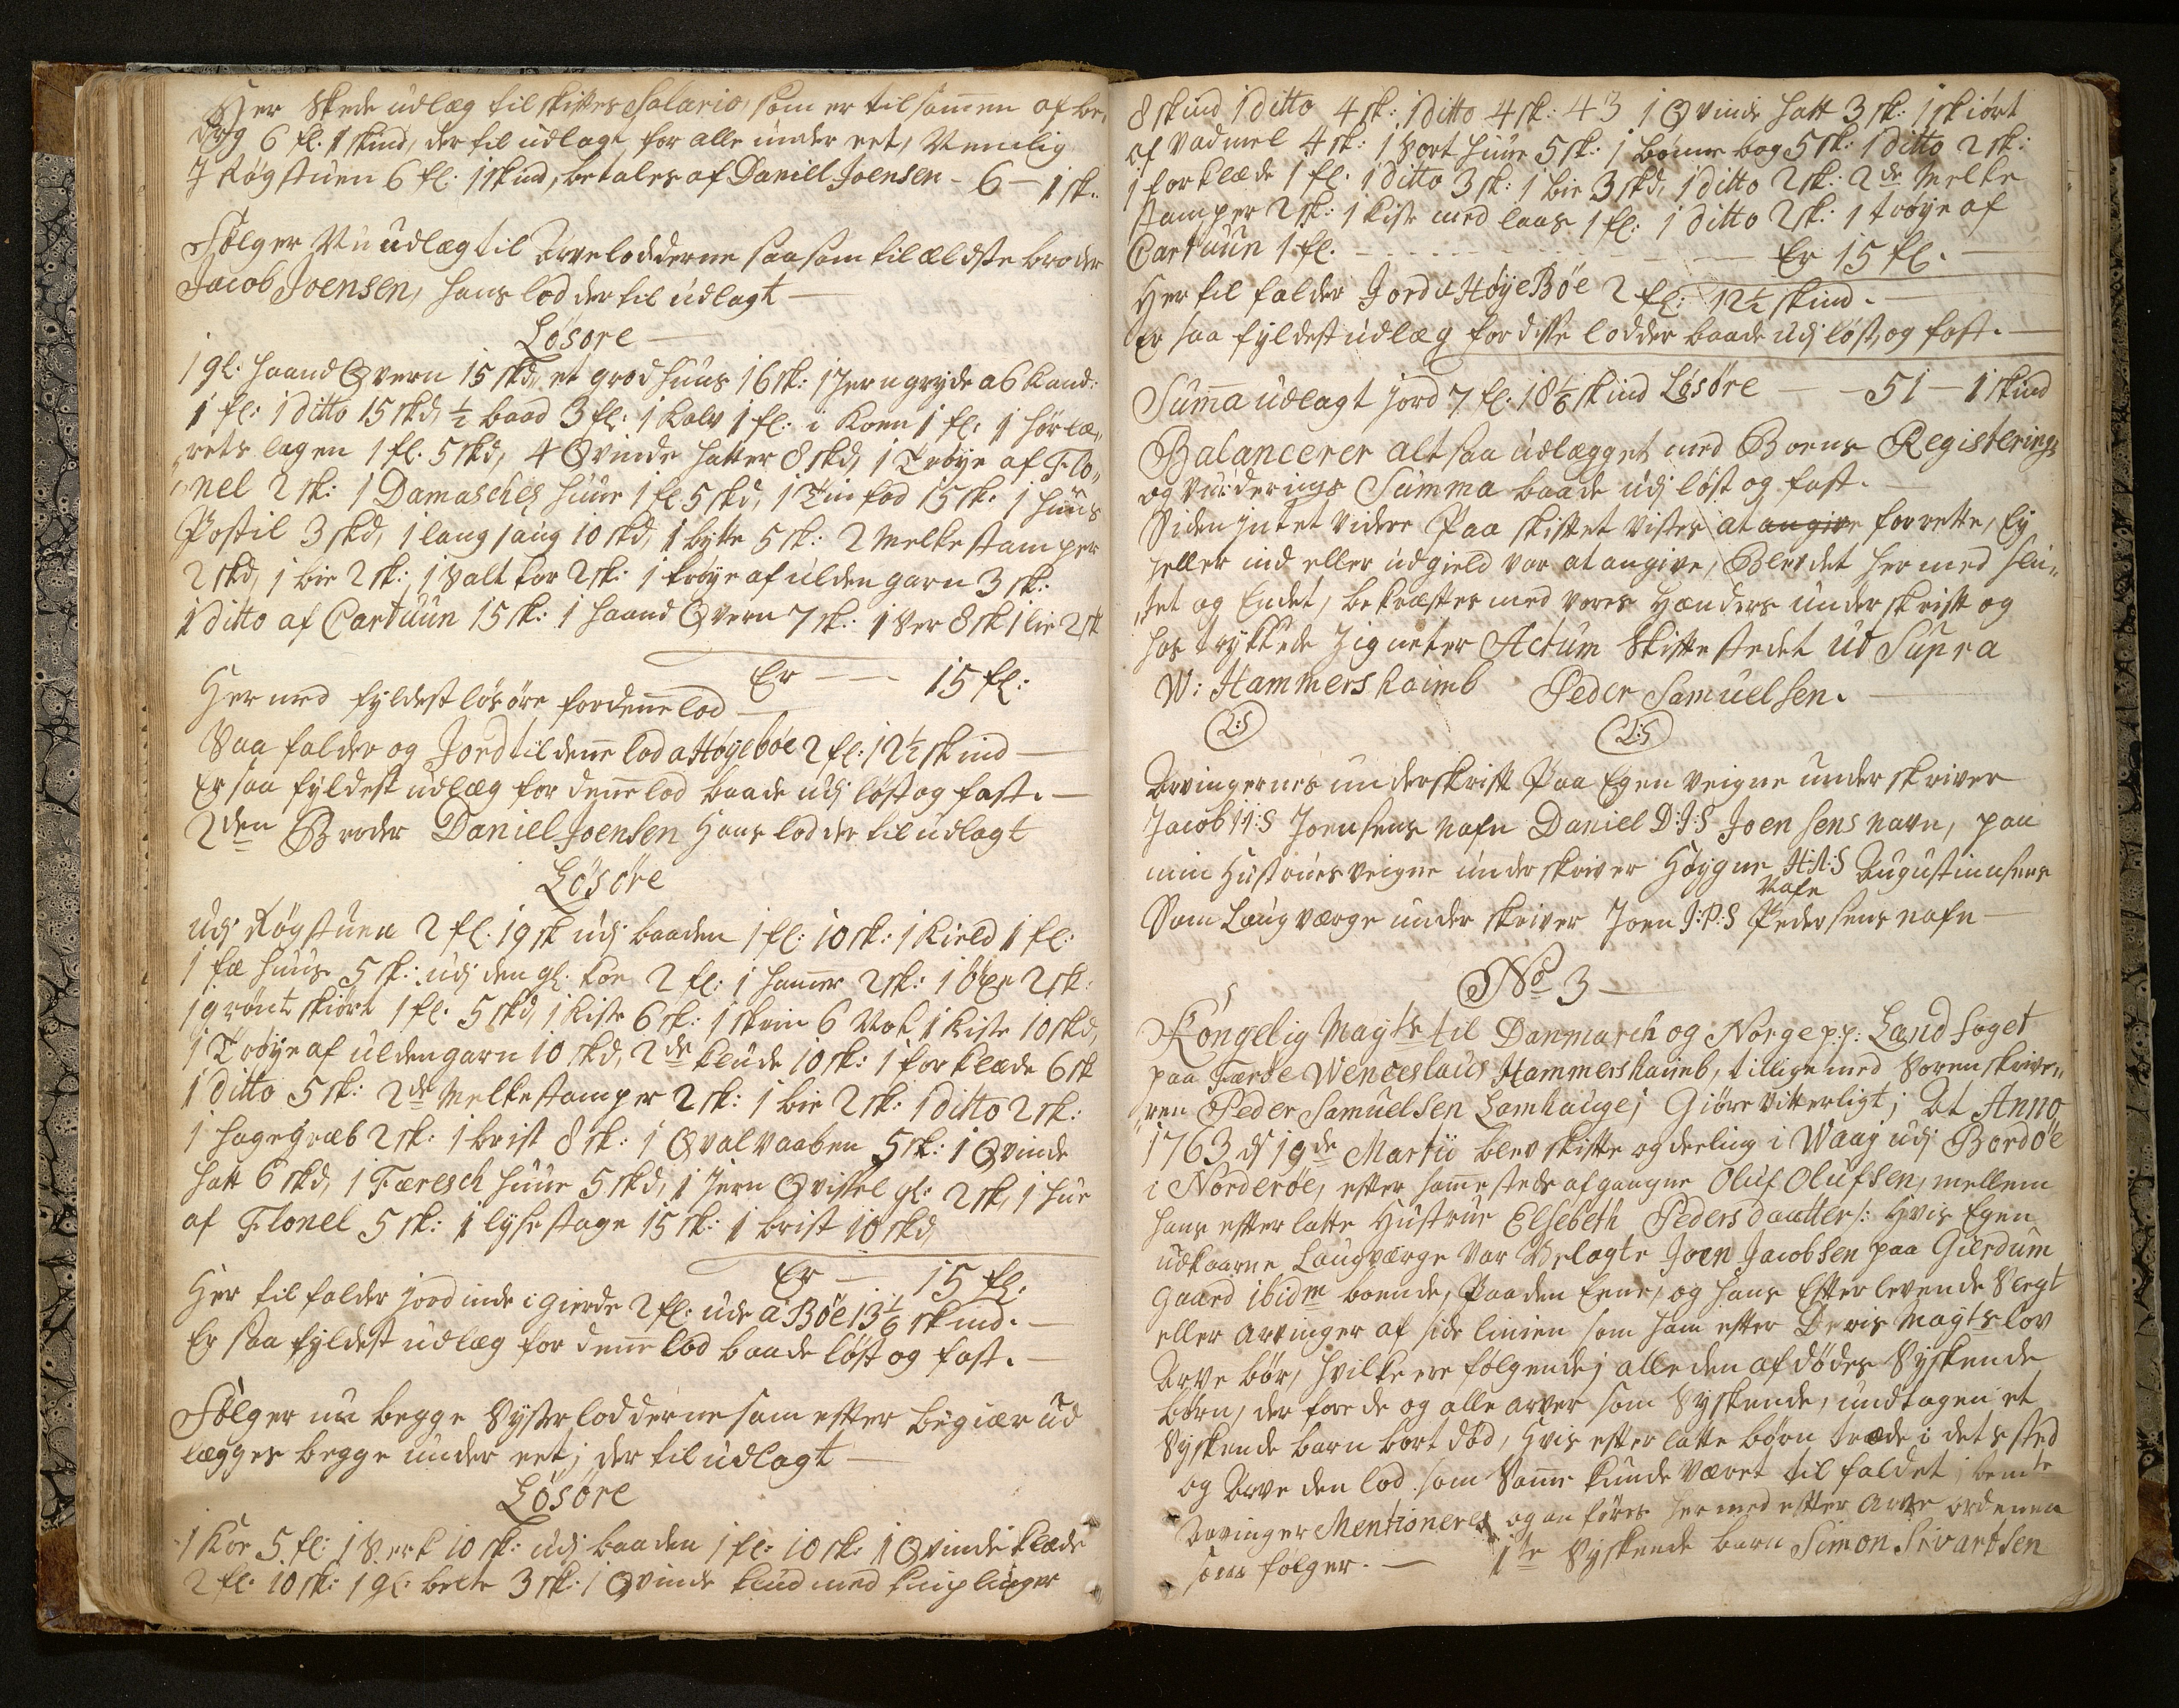 Her skede udlæg til skiftes Salario, som er tilsamen af be„
drag 6 fl: 1 skind, der til udlagt for alle under eet, Nemlig
J Røgstuen 6 fl: 1 skind, betales af Daniell Joensen - 6 — 1 sk:
Følger Nu udlæg til Arvelodderne saasom til ældste broder
Jacob Joensen, hans lod der til udlagt —
Løsøre —
1 gl: haand Qvern 15 skd, et grod huus 16 sk: 1 Jern gryde a 6 Kand:
1 fl: 1 ditto 15 skd, ½ baad 3 fl: 1 Kalv 1 fl: i Koen 1 fl: 1 hør læ„
„rets lagen 1 fl. 5 skd, 4 Qvinde hatter 8 skd, 1 Trøye af Flo„
„nel 2 sk: 1 Damasches huue 1 fl 5 skd, 1 Tin fad 15 sk: 1 huus
Postil 3 skd, 1 lang saug 10 skd, 1 bytte 5 sk: 2 Melke stamper
2 skd, 1 bie 2 sk: 1 Salt kar 2 sk: 1 trøye af ulden garn 3 sk:
1 ditto af Cartuun 15 sk: 1 haand Qvern 7 sk: 1 Ver 8 sk 1 lie 2 sk
Er —— 15 fl:
Her med fyldest løsøre for denne lod —
Saa falder og Jord til denne lod a Høyeboe 2 fl: 12½ skind —
Er saa fyldest udlæg for denne lod baade udj løst og fast. —
2den Broder Daniel Joensen Hans lod der til udlagt
Løsøre
Udj Røgstuen 2 fl: 19 sk udj baaden 1 fl: 10 sk: 1 Kield 1 fl:
1 fæ huus 5 sk: udj den gl: koe 2 fl: 1 hamer 2 sk: 1 øxe 2 sk:
1 grønt skiørt 1 fl. 5 skd, 1 Kiste 6 sk: 1 skrin 6 1 Kiste 10 skd,
1 Trøye af ulden garn 10 skd, 2de klude 10 sk: 1 forklæde 6 sk
1 ditto 5 sk: 2de Melke stamper 2 sk: 1 bie 2 sk: 1 ditto 2 sk:
1 hage græb 2 sk: 1 brist 8 sk: 1 Qval vaaben 5 sk: 1 Qvinde
hatt 6 skd, 1 Færesch huue 5 skd, 1 Jern Qvissel gl: 2 sk, 1 hue
af Flonel 5 sk: 1 lyse stage 15 sk: 1 brist 10 skd,
Er — 15 fl:
Her til falder jord inde i gierde 2 fl: ude a Bøe 13⅙ skind. —
Er saa fyldest udlæg for denne lod baade løst og fast. —
Følger nu begge Syster lodderne som efter begiær ud
lægges begge under eet; der til udlagt —
Løsøre
1 Koe 5 fl: 1 Serk 10 sk: udj baaden 1 fl: 10 sk: 1 Qvinde klæde
2 fl: 10 sk: 1 gl: belte 3 sk: 1 Qvinde klud med kniplinger
8 skind 1 ditto 4 sk: 1 ditto 4 sk: 43 1 Qvinde hatt 3 sk: 1 skiørt
af vadmel 4 sk: 1 sort huue 5 sk: 1 bønne bog 5 sk: 1 ditto 2 sk:
1 forklæde 1 fl: 1 ditto 3 sk: 1 bie 3 skd, 1 ditto 2 sk: 2de Melke
stamper 2 sk: 1 Kiste med laas 1 fl: 1 ditto 2 sk: 1 trøye af
Cartuun 1 fl. — Er 15 fl. —
Her til falder Jord a Høye Bøe 2 fl: 12½ skind. —
Er saa fyldest udlæg for disse lodder baade udj løst, og fast. —
Suma udlagt jord 7 fl: 18⅙ skind Løsøre — 51 — 1 skind
Balancerer altsaa udlægget med Boens Registerings
og vurderings Summa baade udj løst og fast. —
Siden intet videre Paa skiftet vistes at angive forrette, Ey
heller ind eller udgield var at angive, Blev det her med slu„
„tet og Endet, bekræftes med vores hænders underskrift og
hos trykkede Zigneter Actum Skifte stedet ut Supra
W: Hammershaimb Peder Samuelsen.
L:S L:S
Arvingernes underskrift Paa Egen veigne underskriver
Jacob I:I:S Joensens nafn Daniel D:J:S Joensens navn, paa
min Hustrues veigne underskriver Høygne H:A:S Augustinusens
Nafn
Som Laugværge underskriver Joen J:P:S Pedersens nafn —
No 3 —
Kongelig Mayts til Danmarch og Norge p.p: Land foget
paa Færøe Wenceslaus Hammershaimb, tillige med Sorenskrive„
„ren Peder Samuelsen Lamhauge; Giøre vitterligt; At Anno
1763 d 19de Martii blev skifte og deeling i Waag udj Bordøe
i Norderøe, efter samesteds afgangne Oluf Olufsen, mellem
hans efterlatte Hustrue Elsebeth Pedersdaatter /: Hvis Egen
udkaarne Laugværge var Velagte Joen Jacobsen paa Gierdum
gaard ibidm boende, Paa den Eene, og hans Efterlevende Slegt
eller Arvinger af side linien som ham efter Deris Mayts lov
Arve bør, hvilke ere følgende; alle den afdødes Syskende
børn, der fore de og alle arver som Syskende, undtagen et
Syskende barn bort død, Hvis efterlatte børn træde i dets sted
og Arve den lod som Same kunde været til faldet; bemte
Arvinger Mentioneres og anføres her med efter Arve ordenen
som følger. — 1te Syskende barn Simon Sivartsen